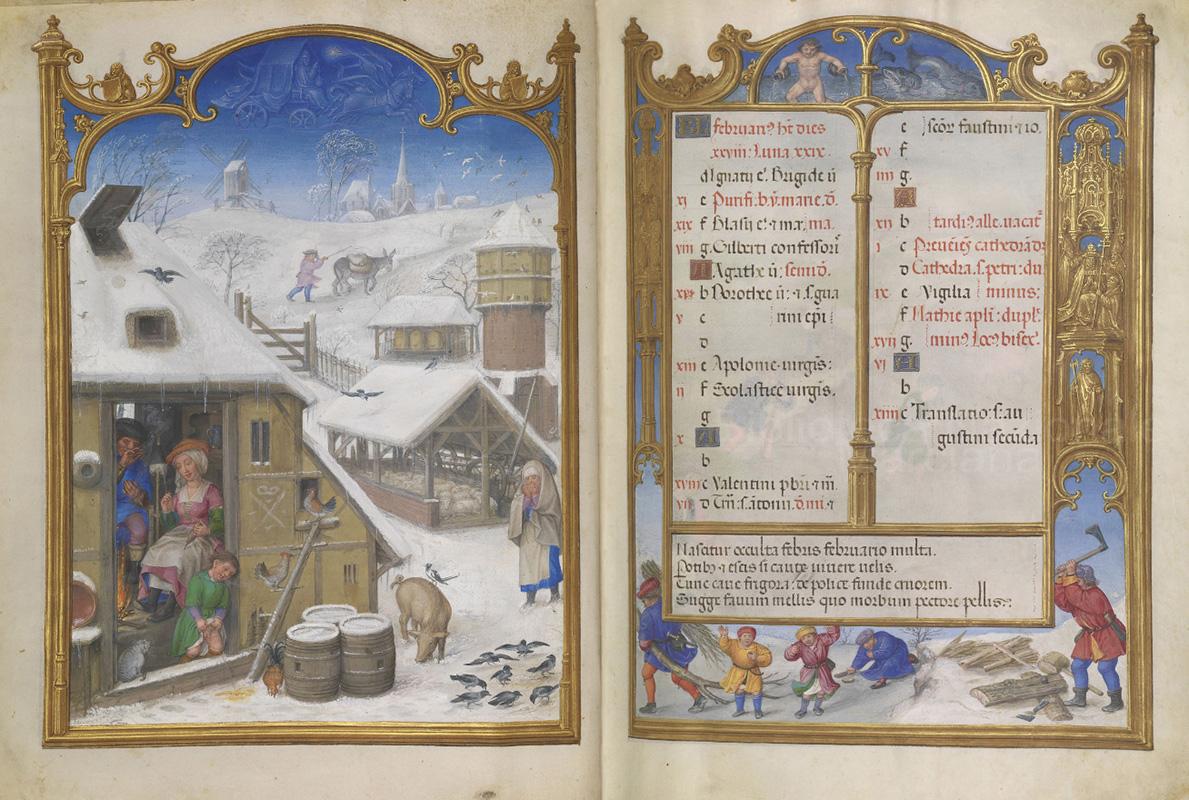 februari⁹ ht dies
xxviii: Luna xxix.
d Ignatii e'. Brigide v̄
xi e Purifi: b. v̄. marie. d.
xix f Blasii e': ⁊ ma: ma.
viii g. Gilberti confessorı̄
A Agathe v̄: semid̄.
xvi b Dorothee v̄: ⁊ s. gua
v c rini epi
d
xiii e Apolonie virgīs:
ii f Scolastice virgīs.
g
x A
b
xviii c Valentini p̄bri ⁊ m̄.
vii d
e faustini ⁊ io.
xv f
iiii g.
A
xii b tardi⁹ alle. vacat
i c cathedra
d Cathedra. s. petri: du
ix e Vigilia minus:
f Mathie apli: dupl.
xvii g. min⁹ Loc⁹ bisex.
vi A
b
xiiii c Translatio: s: au
gustini secūda
Nascitur occulta febris februario multa.
Potib⁹ ⁊ escis si caute vivere velis.
Tunc cave frigora: de police funde cruorem.
Sugge favum mellis quo morbum pectore pellis: